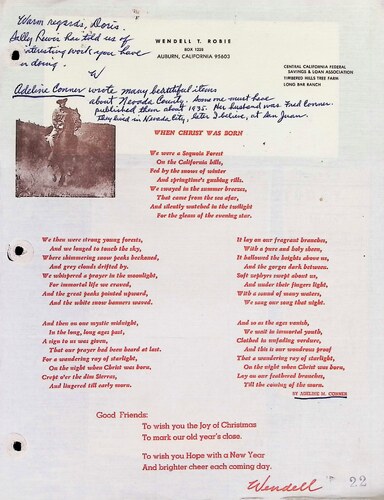 Warm regards, Doris.
Sally Lewis has told us of
interesting work you have
in doing.
W
WENDELL T. ROBIE
BOX 1228
AUBURN, CALIFORNIA 95603
CENTRAL CALIFORNIA FEDERAL
SAVINGS & LOAN ASSOCIATION
TIMBERED HILLS TREE FARM
LONG BAR RANCH
Adeline Conner wrote many beautiful items
about Nevada County. Some one must have
published them about 1935. Her husband was Fred Conner.
They lived in Nevada City, later I believe, at San Juan.
WHEN CHRIST WAS BORN
We were a Sequoia Forest
On the California hills,
Fed by the snows of winter
And springtime's gushing rills.
We swayed in the summer breezes,
That came from the sea afar,
And silently watched in the twilight
For the gleam of the evening star.
We then were strong young forests,
And we longed to touch the sky,
Where shimmering snow peaks beckoned,
And grey clouds drifted by.
We whispered a prayer in the moonlight,
For immortal life we craved,
And the great peaks pointed upward,
And the white snow banners waved.
And then on one mystic midnight,
In the long, long ages past,
A sign to us was given,
That our prayer had been heard at last.
For a wondering ray of starlight,
On the night when Christ was born,
Crept o'er the dim Sierras,
And lingered till early morn.
It lay on our fragrant branches,
With a pure and holy sheen,
It hallowed the heights above us,
And the gorges dark between.
Soft zephyrs swept about us,
And under their fingers light,
With a sound of many waters,
We sang our song that night.
And so as the ages vanish,
We wait in immortal youth,
Clothed in unfading verdure,
And this is our wondrous proof
That a wandering ray of starlight,
On the night when Christ was born,
Lay on our feathered branches,
Till the coming of the morn.
BY ADELINE M. CONNER
Good Friends:
To wish you the Joy of Christmas
To mark our old year's close.
To wish you Hope with a New Year
And brighter cheer each coming day.
Wendell
22